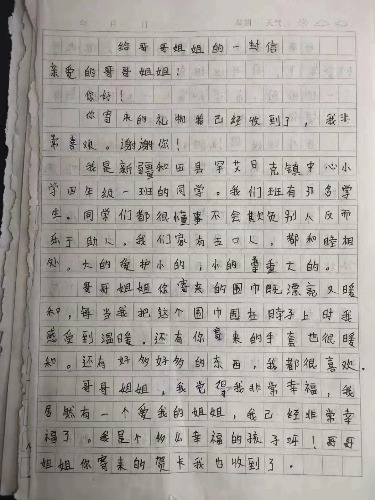 给哥哥姐姐的一封信
亲爱的哥哥姐姐:
你好!
你寄来的礼物我已经收到了,我非
常喜欢。谢谢你!
我是新疆和田县罕艾日克镇中心小
学四年级一班的同学。我们班有多学
生。同学们都很懂事不会欺负别人反而
乐于助人。我们家有五口人,都和睦相
处。大的爱护小的,小的尊重大的。
哥哥姐姐你寄来的围巾既漂亮又暖
和,每当我把这个围巾围在脖子上时我
感受到温暖。还有你寄来的手套也很暖
和。还有好多好多的东西,我都很喜欢.
哥哥姐姐,我觉得我非常幸福,我
居然有一个爱我的姐姐,我已经非常幸
福了。我是个多么幸福的孩子呀!哥哥
姐姐你寄来的贺卡我也收到了。